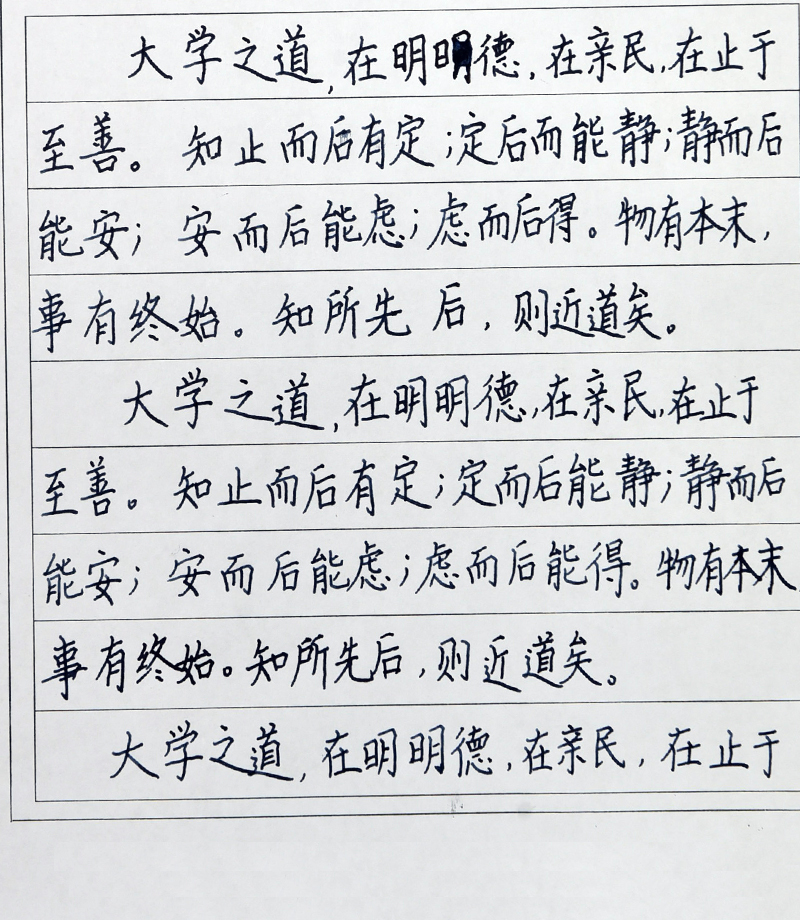 大学之道,在明明德,在亲民,在止于
至善。知止而后有定;定后而能静;静而后
能安;安而后能虑;虑而后得。物有本末,
事有终始。知所先后,则近道矣。
大学之道,在明明德,在亲民,在止于
至善。知止而后有定;定而后能静;静而后
能安;安而后能虑;虑而后能得。物有本末
事有终始。知所先后,则近道矣。
大学之道,在明明德,在亲民,在止于